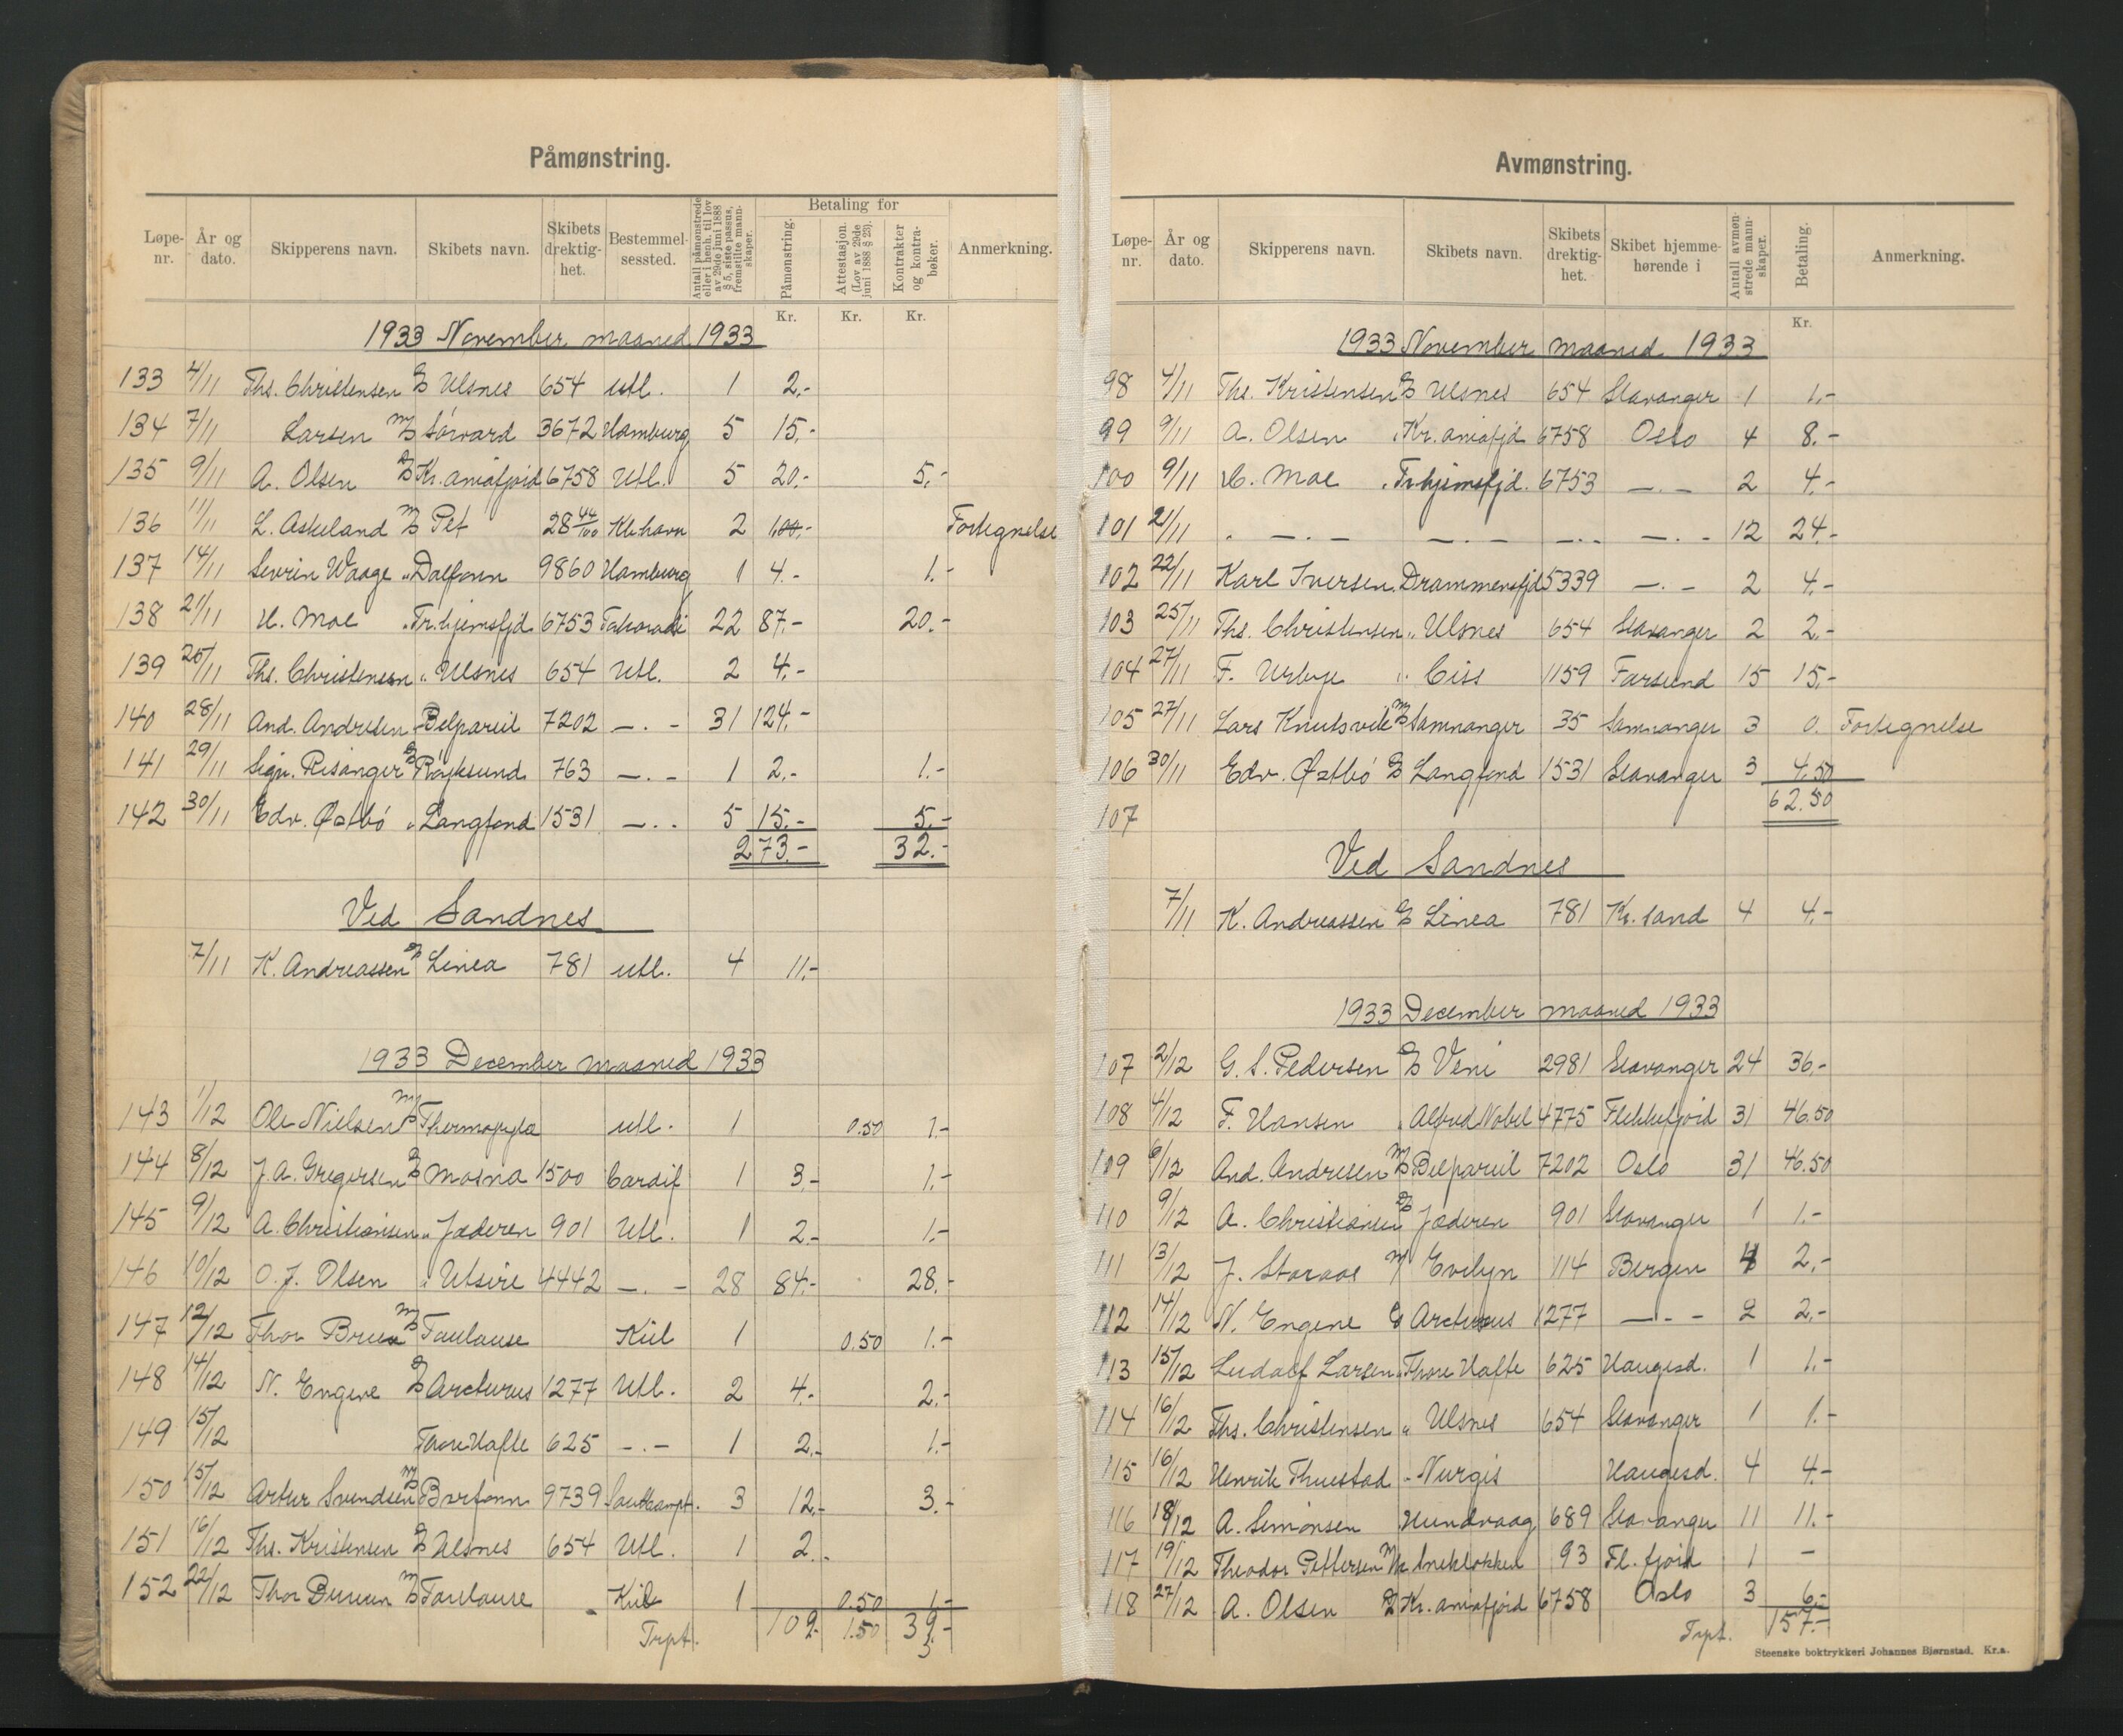 Påmønstring.
Løpe-nr. År og dato. Skipperens navn. Skibets navn. Skibets drektig-het. Bestemmel-sessted. Antall påmønstrede eller i henh. til lov av 29de juni 1888 § 5, siste passus, fremstilte mann-skaper. Betaling for Påmønstring. Attestasjon. (Lov av 29de juni 1888 § 23). Kontrakter og kontra-bøker. Anmerkning.
Kr. Kr. Kr.
1933 November maaned 1933
133 4/11 Ths. Christensen D/S Ulsnes 654 utl. 1 2.-
134 7/11 Larsen M/S Sørvard 3672 Hamburg 5 15.-
135 9/11 A. Olsen D/S Kr.aniafjord 6758 Utl. 5 20.- 5.-
136 11/11 L. Askeland M/S Pet 28 44/100 Kb.havn 2 1,00.- Fortegnelse
137 14/11 Sevrin Waage " Dalfonn 9860 Hamburg 1 4.- 1.-
138 21/11 H. Moe " Tr.hjemsfjd. 6753 Takoradi 22 87.- 20.-
139 25/11 Ths. Christensen " Ulsnes 654 Utl. 2 4.-
140 28/11 And. Andresen " Belpareil 7202 -.- 31 124.-
141 29/11 Sigv. Risanger D/S Røyksund 763 -.- 1 2.- 1.-
142 30/11 Edv. Østbó " Langfond 1531 -.- 5 15.- 5.-
273.- 32.-
Ved Sandnes
7/11 K. Andreassen D/S Linea 781 utl. 4 11.-
1933 December maaned 1933
143 1/12 Ole Nielsen M/S Thermopylæ utl. 1 0.50 1.-
144 8/12 J. A. Gregersen D/S Mosna 1500 Cardif 1 3.- 1.-
145 9/12 A. Christiansen " Jæderen 901 Utl. 1 2.- 1.-
146 10/12 O. J. Olsen " Utsire 4442 -.- 28 84.- 28.-
147 12/12 Thor Bruun M/S Toulouse Kiel 1 0.50 1.-
148 14/12 N. Engene D/S Arcturus 1277 Utl. 2 4.- 2.-
149 15/12 Thore Hafte 625 -.- 1 2.- 1.-
150 15/12 Artur Svendsen M/S Barfonn 9739 Southampt. 3 12.- 3.-
151 16/12 Ths. Kristensen D/S Ulsnes 654 Utl. 1 2.-
152 22/12 Thor Bruun M/S Toulouse Kiel 1 0.50 1.-
Trpt. 109.- 1.50 39.-
3
Avmønstring.
Løpe-nr. År og dato. Skipperens navn. Skibets navn. Skibets drektig-het. Skibet hjemme-hørende i Antall avmøn-strede mann-skaper. Betaling. Anmerkning.
Kr.
1933 November maaned 1933
98 4/11 Ths. Kristensen D/S Ulsnes 654 Stavanger 1 1.-
99 9/11 A. Olsen " Kr.aniafjd 6758 Oslo 4 8.-
100 9/11 H. Moe " Tr.hjemsfjd. 6753 -.- 2 4.-
101 21/11 " -.- -.- -.- -.- 12 24.-
102 22/11 Karl Iversen " Drammensfjd 5339 -.- 2 4.-
103 25/11 Ths. Christensen " Ulsnes 654 Stavanger 2 2.-
104 27/11 F. Urbye " Ciss 1159 Farsund 15 15.-
105 27/11 Lars Knutsvik M/S Samnanger 35 Samnanger 3 0. Fortegnelse
106 30/11 Edv. Østbó D/S Langfond 1531 Stavanger 3 4.50
107 62.50
Ved Sandnes
7/11 K. Andreassen D/S Linea 781 Kr.sand 4 4.-
1933 December maaned 1933
107 2/12 G. S. Pedersen D/S Veni 2981 Stavanger 24 36.-
108 4/12 F. Hansen " Alfred Nobel 4775 Flekkefjord 31 46.50
109 6/12 And. Andresen M/S Belpareil 7202 Oslo 31 46.50
110 9/12 A. Christiansen D/S Jæderen 901 Stavanger 1 1.-
111 13/12 J. Storaas M/ Evelyn 114 Bergen 4 2.-
112 14/12 N. Engene D/S Arcturus 1277 -.- 2 2.-
113 15/12 Ludolf Larsen " Thore Hafte 625 Haugesd. 1 1.-
114 16/12 Ths. Christensen " Ulsnes 654 Stavanger 1 1.-
115 16/12 Henrik Thuestad " Nurgis Haugesd. 4 4.-
116 18/12 A. Simonsen Hundvaag 689 Stavanger 11 11.-
117 19/12 Theodor Pettersen M/k Sneklokken 93 Fl.fjord 1 -
118 27/12 A. Olsen D/S Kr.aniafjord 6758 Oslo 3 6.-
Trpt. 157.-
Steenske boktrykkeri Johannes Bjørnstad. Kr.a.